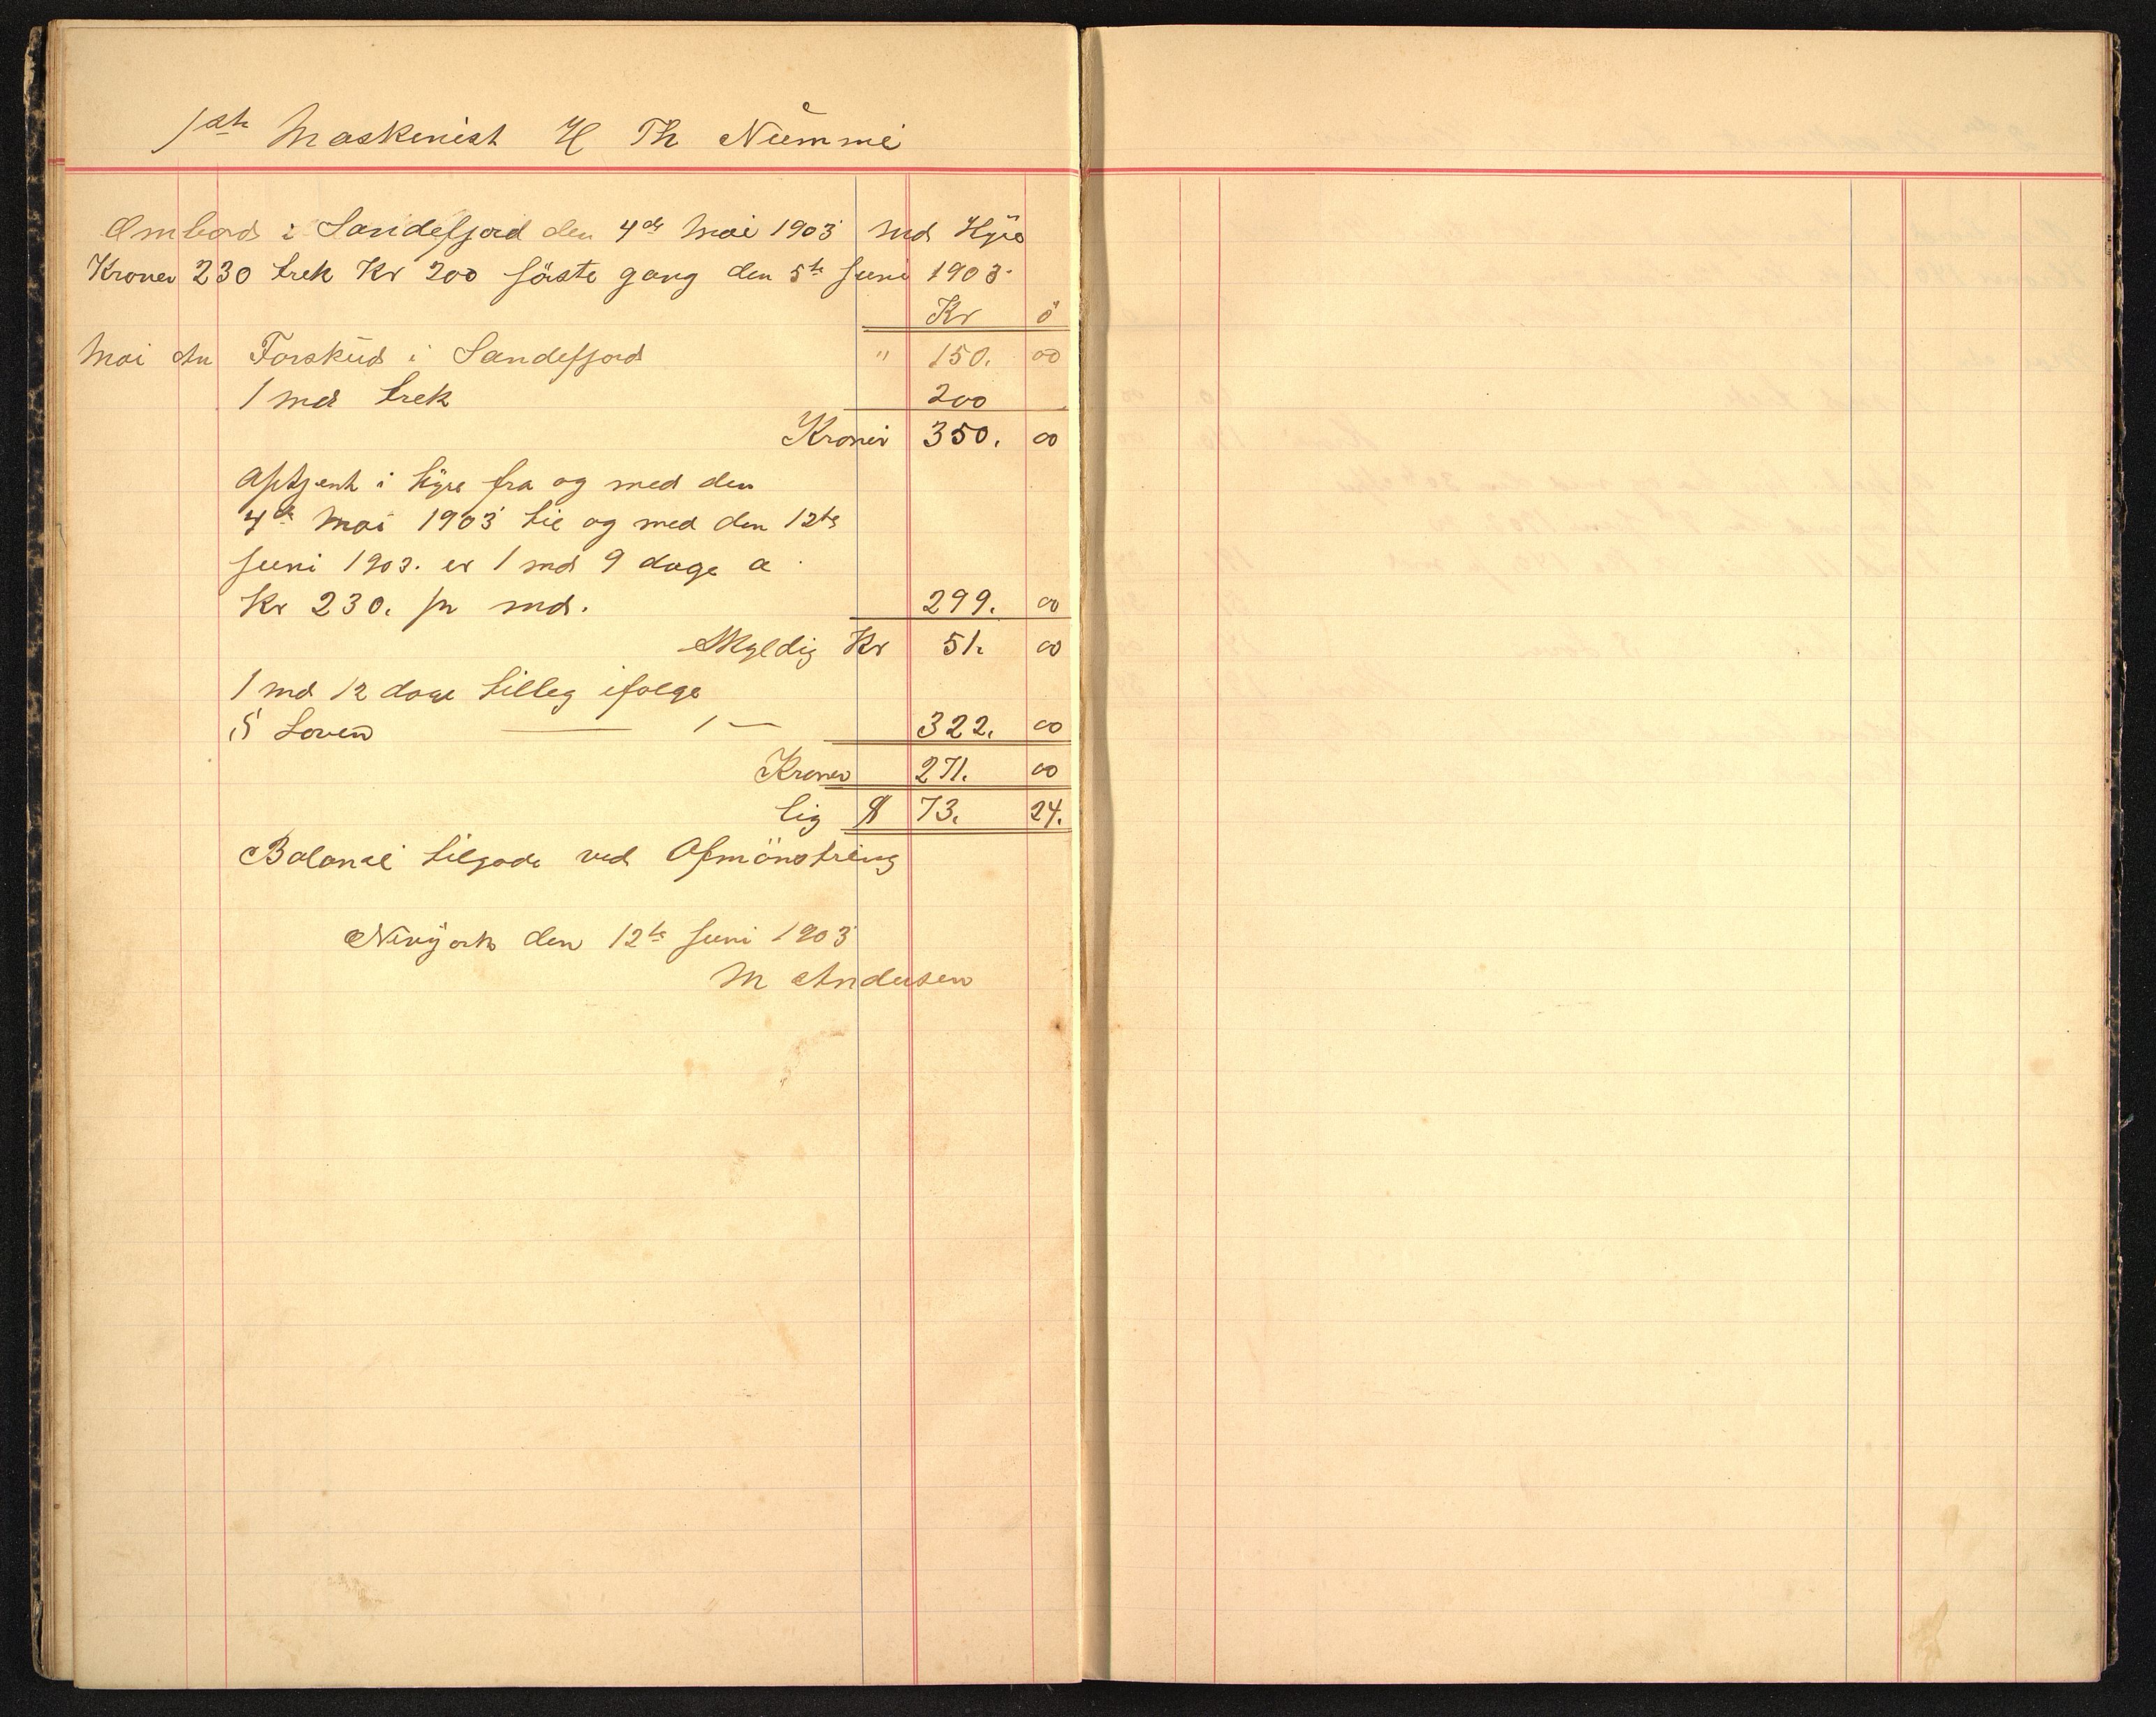 1ste Maskinist H Th Nümmé
Ombord i Sandefjord den 4de Mai 1903 Md Hÿre
Kroner 230 trek Kr 200 förste gang den 5te Juni 1903.
Kr ö
Mai den Forskŭd i Sandefjord " 150. 00
1 md trek 200
Kroner 350. 00
Aftjent i hÿre fra og med den
4de Mai 1903 til og med den 12te
Juni 1903. er 1 md 9 dage a
Kr 230. pr md. 299. 00
Skyldig Kr 51. 00
1 md 12 dage tilleg ifølge
§ Loven — 1 — 322. 00
Kroner 271. 00
lig $ 73. 24.
Balance tilgode ved Afmönstring
Newÿork den 12te Juni 1903
M Andersen